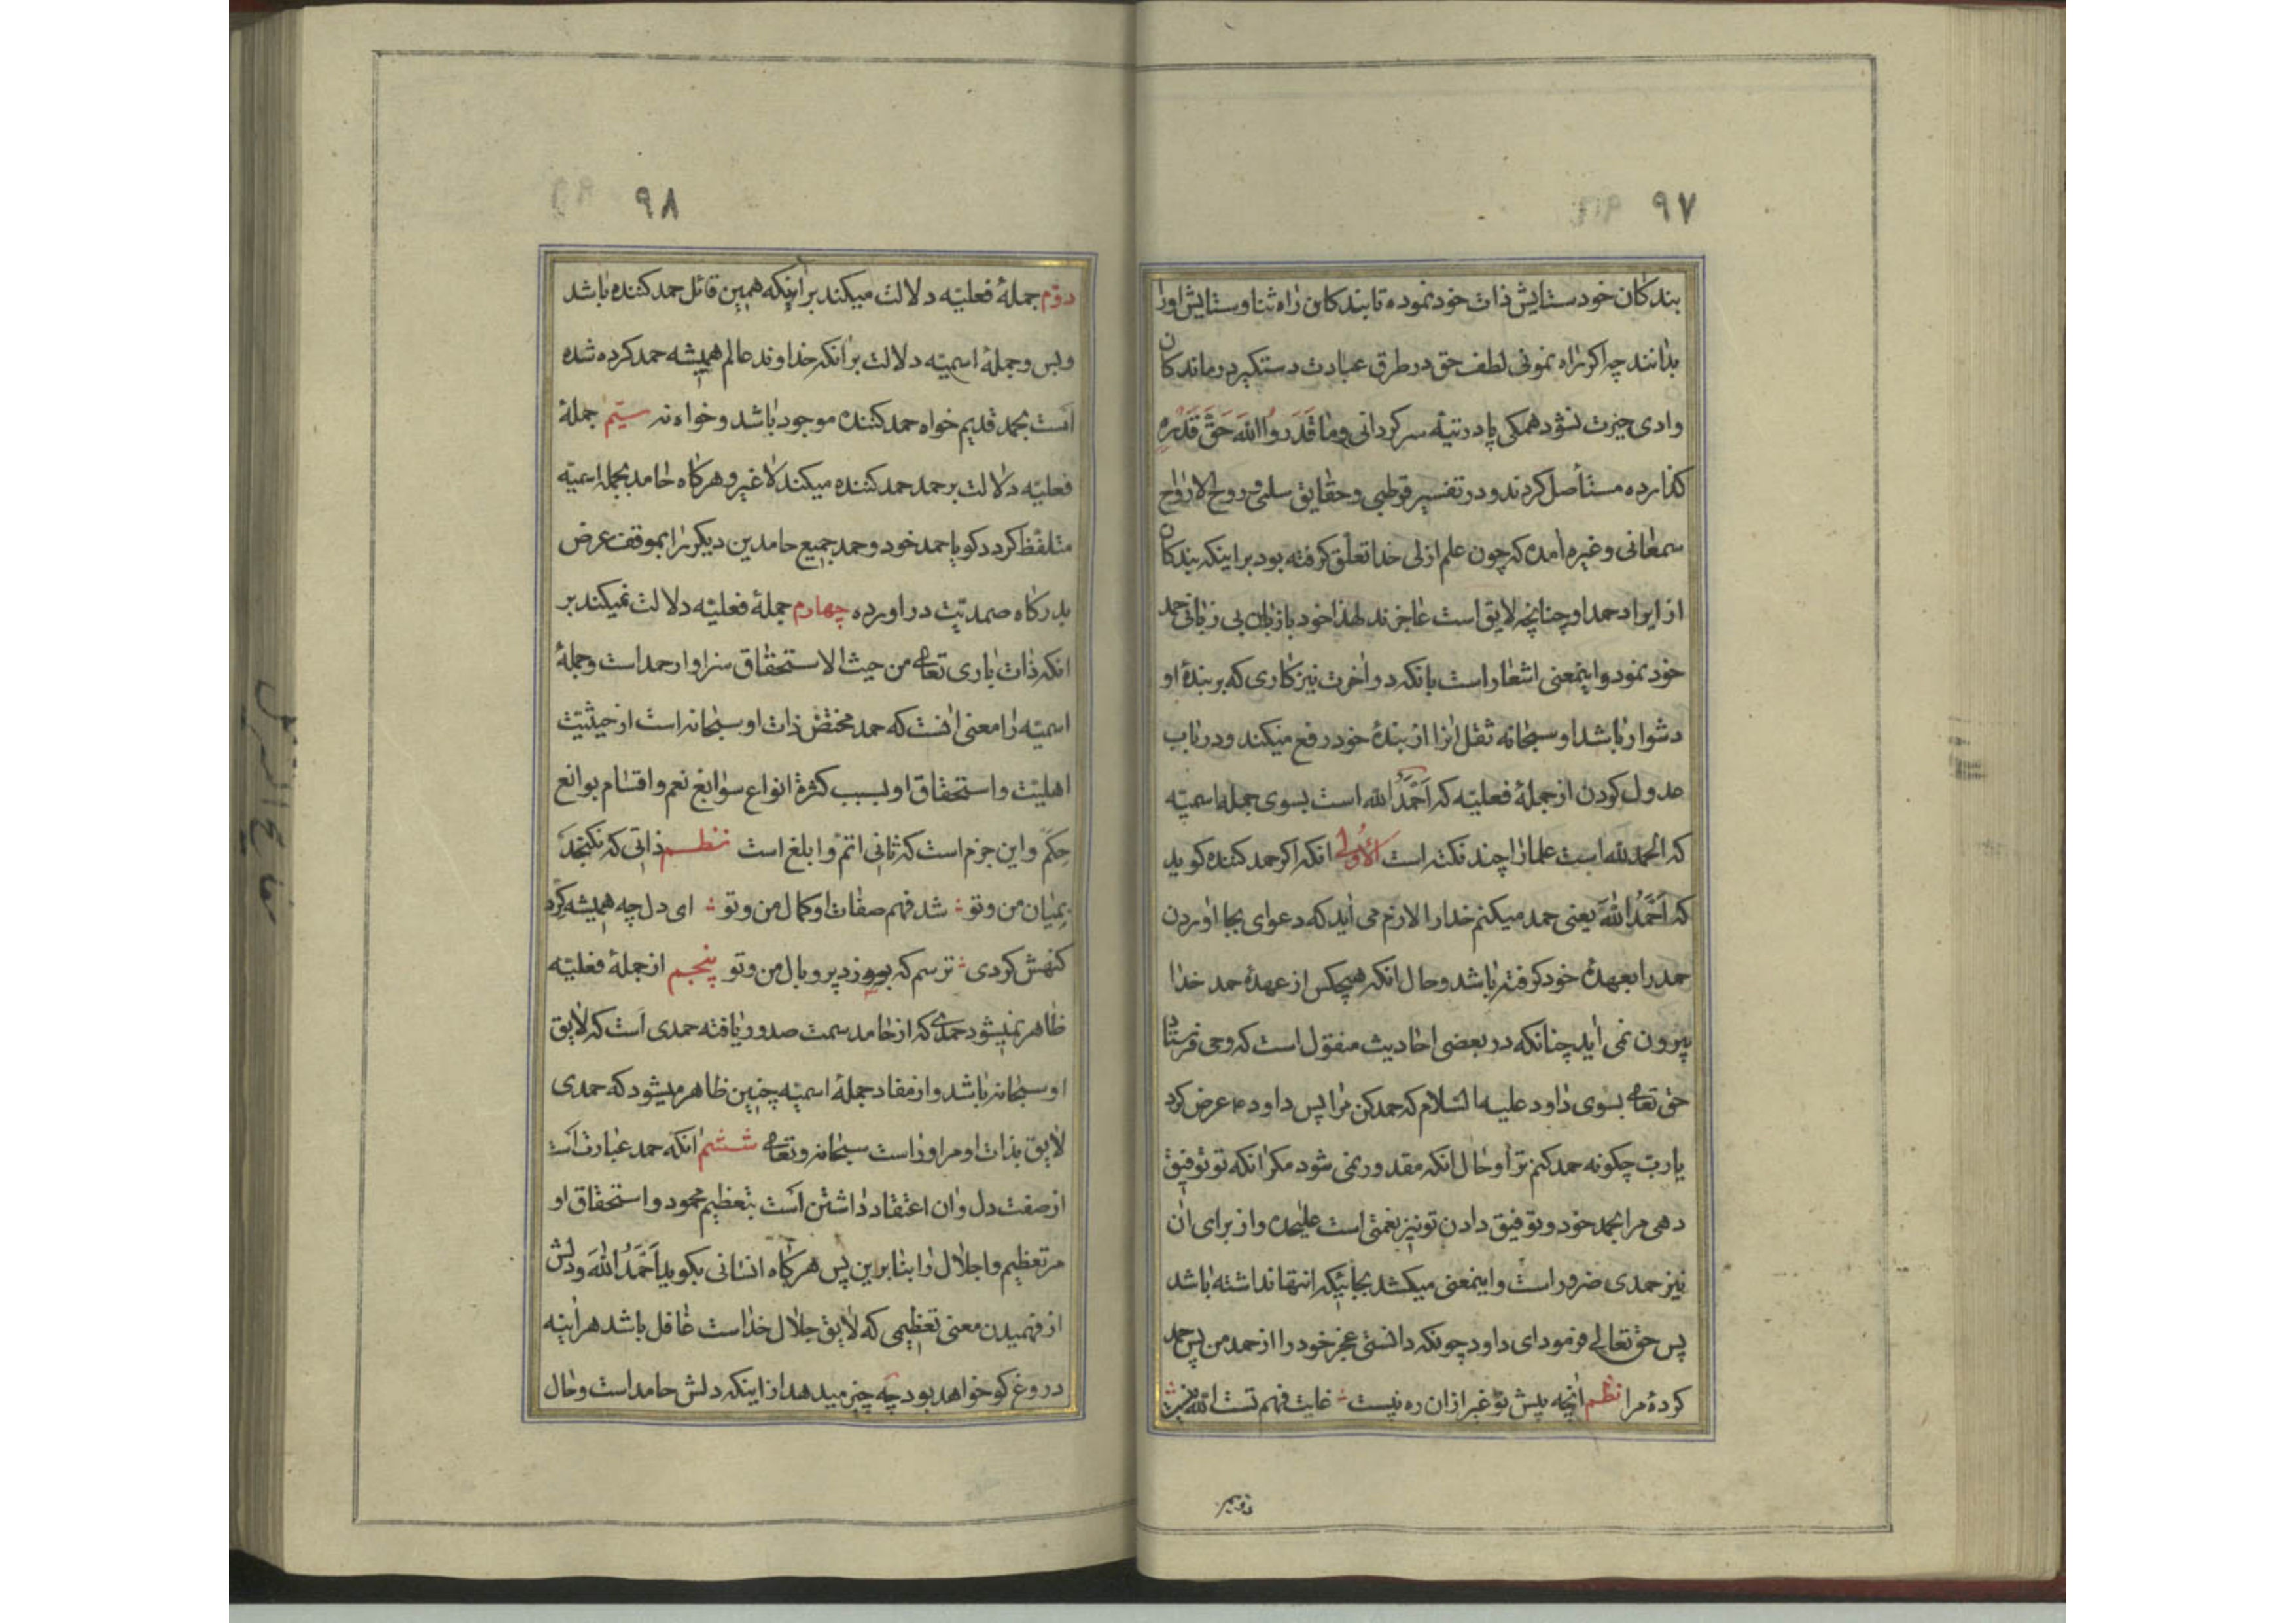 ۹۷
بندکان خود ستایش ذات خود نموده تا بندکان راه ثنا و ستایش او را
بدانند چه اکر راه نمونی لطف حق در طرق عبادت دستکیر درماندکان
وادی حیرت نشود همکی پا در تیه سرکردانی وَمٰا قَدَرَوُا اللّٰهَ حَقَّ قَدْرِهِ
کذارده مستأصل کردند و در تفسیر قرطبی و حقایق سلمی و روح الارواح
سمعانی و غیره امده که چون علم ازلی خدا تعلّق کرفته بود بر اینکه بندکان
از ایراد حمد او چنانچه لایق است عاجزند لهذا خود بازبان بی زبانی حمد
خود نمود و اینمعنی اشعار است بانکه در اخرت نیز کاری که بر بندهٔ او
دشوار باشد او سبحانه ثقل انرا از بندهٔ خود رفع میکند و در باب
عدول کردن از جملهٔ فعلیّه که اَحْمَدُ اللّه است بسوی جملهٔ اسمیّه
که الحمد للّه است علما را چند نکته است الأولی انکه اکر حمد کننده کوید
که اَحْمَدُ اللّٰهَ یعنی حمد میکنم خدا را لازم می اید که دعوای بجا اوردن
حمد را بعهدهٔ خود کرفته باشد و حال انکه هیچکس از عهدهٔ حمد خدا
بیرون نمی اید چنانکه در بعضی احادیث منقول است که وحی فرستاد
حق تعالی بسوی داود علیه السّلام که حمد کن مرا پس داود ع عرض کرد
یا ربّ چکونه حمد کنم ترا و حال انکه مقدور نمی شود مکر انکه تو توفیق
دهی مرا بحمد خود و توفیق دادن تو نیز نعمتی است علیحده و از برای ان
نیز حمدی ضرور است و اینمعنی میکشد بجائیکه انتها نداشته باشد
پس حق تعالی فرمود ای داود چونکه دانستی عجز خود را از حمد من پس حمد
کردهٔ مرا نظم انچه پیش تو غیر از ان ره نیست غایت فهم تست اللّه نیست
دویم
۹۸
دوّم جملهٔ فعلیّه دلالت میکند بر اینکه همین قائل حمد کننده باشد
و بس و جملهٔ اسمیّه دلالت بر انکه خداوند عالم همیشه حمد کرده شده
است بحمد قدیم خواه حمد کننده موجود باشد و خواه نه سیّم جملهٔ
فعلیّه دلالت بر حمد حمد کننده میکند لا غیر و هرکاه حامد بجملهٔ اسمیّه
متلفّظ کردد کویا حمد خود و حمد جمیع حامدین دیکر را بموقف عرض
بدرکاه صمدیّت در اورده چهارم جملهٔ فعلیّه دلالت نمیکند بر
انکه ذات باری تعالی من حیث الاستحقاق سزاوار حمد است و جملهٔ
اسمیّه را معنی انست که حمد مختصّ ذات او سبحانه است از حیثیّت
اهلیّت و استحقاق او بسبب کثرة انواع سوابغ نعم و اقسام بوانع
حِکَم و این جزم است که ثانی اتمّ و ابلغ است نظم ذاتی که نکنجد
بمیان من و تو شد فهم صفات او کمال من و تو ای دل چه همیشه کرد
کنهش کردی ترسم که بسوزد پر و بال من و تو پنجم از جملهٔ فعلیّه
ظاهر نمیشود حمدی که از حامد سمت صدور یافته حمدی است که لایق
او سبحانه باشد و از مفاد جملهٔ اسمیّه چنین ظاهر میشود که حمدی
لایق بذات او مر او را است سبحانه و تعالی ششم انکه حمد عبارت است
از صفت دل و ان اعتقاد داشتن است بتعظیم محمود و استحقاق او
مر تعظیم و اجلال را بنا بر این پس هرکاه انسانی بکوید اَحْمَدُ اللّٰهَ و دلش
از فهمیدن معنی تعظیمی که لایق جلال خدا است غافل باشد هراینه
دروغ کو خواهد بود چه خبر میدهد از اینکه دلش حامد است و حال